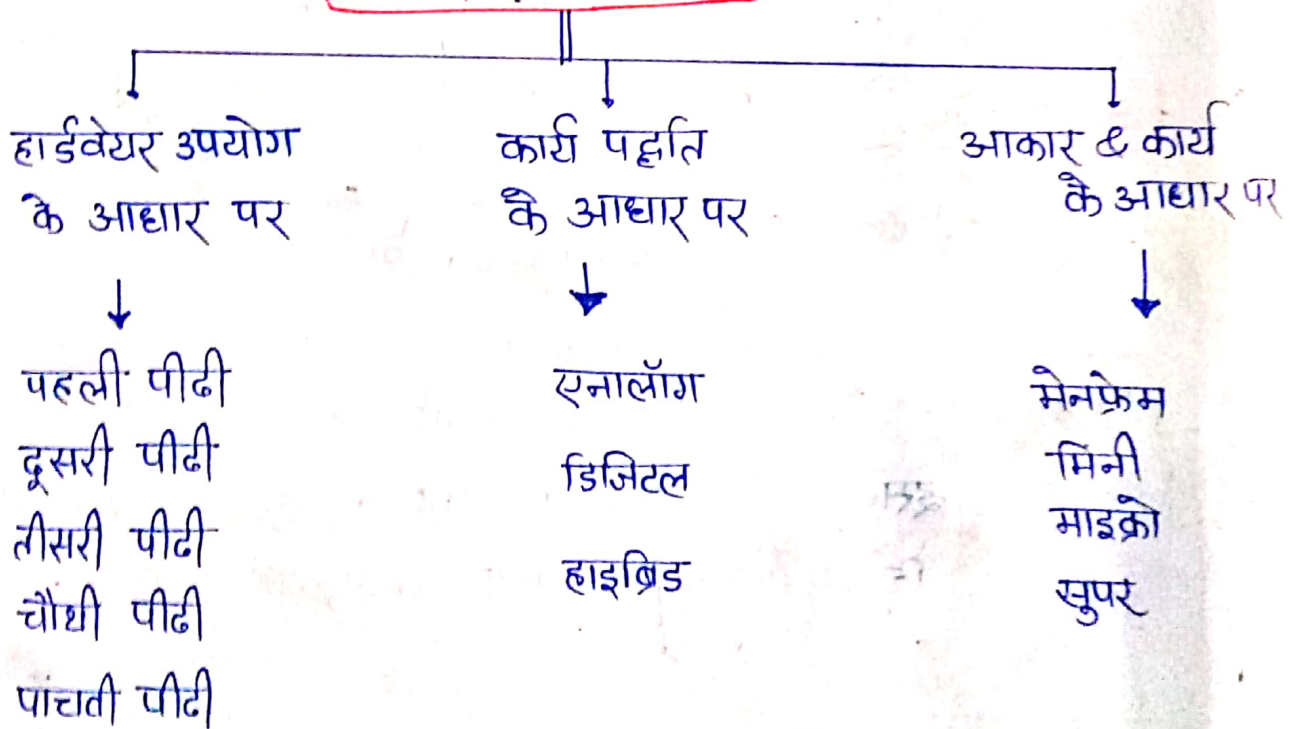 हार्डवेयर उपयोग
के आधार पर
पहली पीढी
दूसरी पीढी
तीसरी पीढी
चौथी पीढी
पांचवी पीढी
कार्य पद्धति
के आधार पर
एनालॉग
डिजिटल
हाइब्रिड
आकार & कार्य
के आधार पर
मेनफ्रेम
मिनी
माइक्रो
सुपर